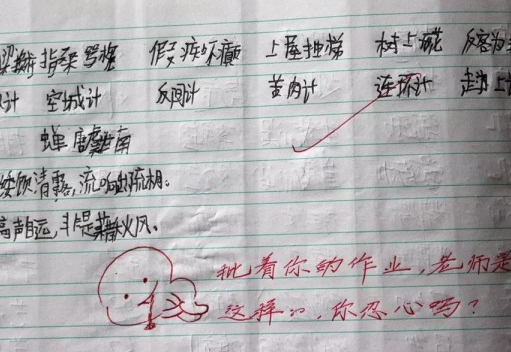 指桑骂槐 假痴不癫 上屋抽梯 树上开花 反客为
计 空城计 反间计 苦肉计 连环计 走为上
蝉 虞世南
饮清露,流响出疏桐。
高声自远,非是藉秋风。
批着你的作业,老师是
这样的,你忍心吗?